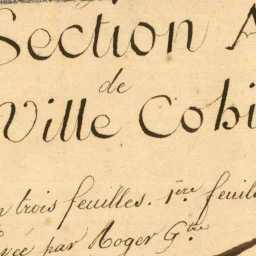 Section A
de
Ville Cobi
n trois feuilles. 1ère feuil
par Roger Gtre